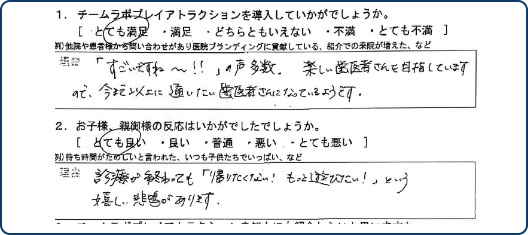 1. チームラボプレイアトラクションを導入していかがでしょうか。
[ とても満足 ・満足 ・どちらともいえない ・不満 ・とても不満 ]
例)他院や患者様から問い合わせがあり医院ブランディングに貢献している、紹介での来院が増えた、など
理由 「すごいですね〜!!」の声多数。楽しい歯医者さんを目指しています
ので、今まで以上に通いたい歯医者さんになっているようです。
2. お子様、親御様の反応はいかがでしたでしょうか。
[ とても良い ・良い ・普通 ・悪い ・とても悪い ]
例)待ち時間がたのしいと言われた、いつも子供たちでいっぱい、など
理由 診療が終わっても「帰りたくない!もっと遊びたい!」という
嬉しい悲鳴があります。